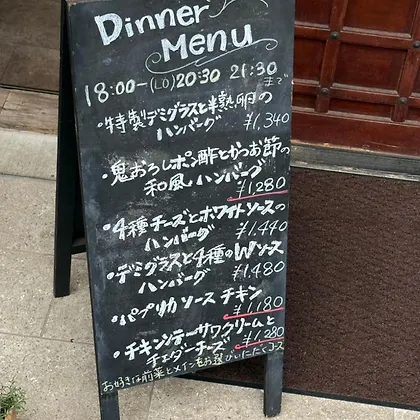 Dinner
Menu
18:00―(LO)20:30 21:30まで
・特製デミグラスと半熟卵の
ハンバーグ ¥1,340
・鬼おろしポン酢とかつお節の
和風ハンバーグ
¥1,280
・4種チーズとホワイトソースの
ハンバーグ ¥1,440
・デミグラスと4種のWソース
ハンバーグ ¥1,480
・パプリカソース チキン
¥1,180
・チキンテーサワクリームと
チェダーチーズ ¥1,280
お好きな前菜とメインをお選びいただくコース